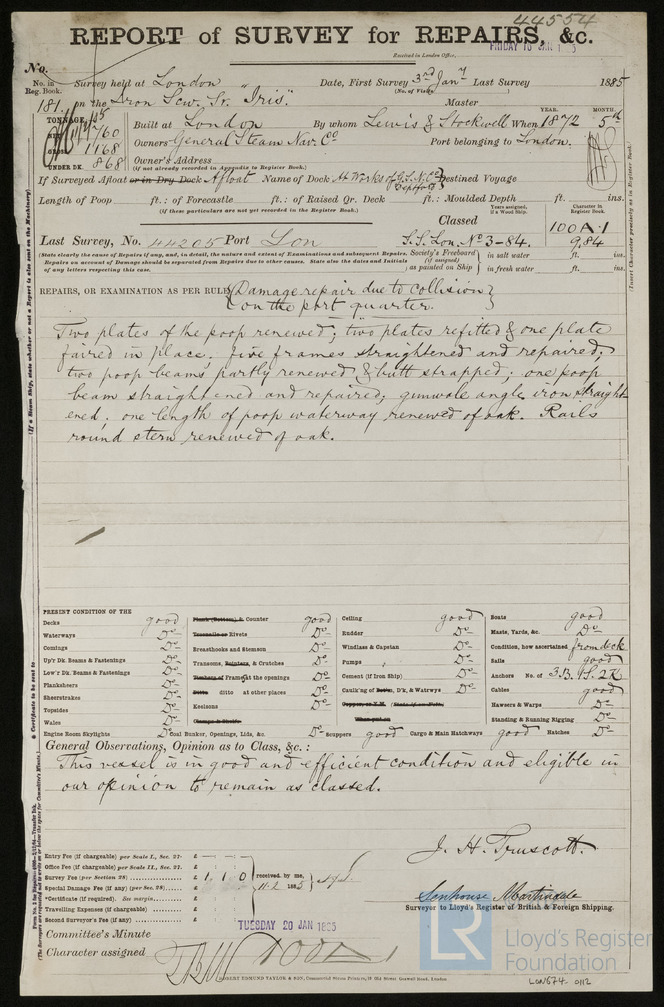 44554
REPORT of SURVEY for REPAIRS, &c.
FRIDAY 16 JAN
Received in London Office,
No.
No. in Reg. Book.
Survey held at London
Date, First Survey 3rd Jany Last Survey 1885
(No. of Visits
181 on the Iron Scw. Sr. "Iris".
Master
TONNAGE
NET 760
GROSS 1168
UNDER DK. 868
Built at London By whom Lewis & Stockwell When 1872 5th
YEAR. MONTH.
Owners General Steam Nav. Co
Port belonging to London.
Owner's Address
(if not already recorded in Appendix to Register Book.)
If Surveyed Afloat or in Dry Dock Afloat Name of Dock At Works of G.S.N.Co Deptford Destined Voyage
Length of Poop ft.: of Forecastle ft.: of Raised Qr. Deck ft.: Moulded Depth ft. ins.
(If these particulars are not yet recorded in the Register Book.)
Years assigned, if a Wood Ship.
Character in Register Book.
Classed
100A.1
Last Survey, No. 44205 Port Lon S.S. Lon. No 3-84. 9,84
(State clearly the cause of Repairs, if any, and, in detail, the nature and extent of Examinations and subsequent Repairs.
Repairs on account of Damage should be separated from Repairs due to other causes. State also the dates and initials
of any letters respecting this case.
Society's Freeboard (if assigned) as painted on Ship
in salt water ft. ins.
in fresh water ft. ins.
REPAIRS, OR EXAMINATION AS PER RULE, Damage repair due to collision
on the port quarter.
Two plates of the poop renewed; two plates refitted & one plate
faired in place. Five frames straightened and repaired,
two poop beams partly renewed & butt strapped; one poop
beam straightened and repaired; gunwale angle iron straight
ened; one length of poop waterway renewed of oak. Rails
round stern renewed of oak.
PRESENT CONDITION OF THE
Decks good
Waterways Do
Comings Do
Up'r Dk. Beams & Fastenings Do
Low'r Dk. Beams & Fastenings Do
Planksheers Do
Sheerstrakes Do
Topsides Do
Wales Do
Engine Room Skylights Do
Plank (Bottom) & Counter good
Treenails or Rivets Do
Breasthooks and Stemson Do
Transoms, Pointers, & Crutches Do
Timbers of Frame at the openings Do
Ditto ditto at other places Do
Keelsons Do
Clamps & Shelfs
Coal Bunker, Openings, Lids, &c. Do
Ceiling good
Rudder Do
Windlass & Capstan Do
Pumps Do
Cement (if Iron Ship) Do
Caulk'ng of Bottm, D'k, & Watrwys Do
Scuppers good
Cargo & Main Hatchways good
Boats good
Masts, Yards, &c. Do
Condition, how ascertained from deck
Sails good
Anchors No. of 3.B. 1S. 2K
Cables good
Hawsers & Warps Do
Standing & Running Rigging Do
Hatches Do
General Observations, Opinion as to Class, &c.:
This vessel is in good and efficient condition and eligible in
our opinion to remain as classed.
J. H. Truscott.
Entry Fee (if chargeable) per Scale I., Sec. 27- £
Office Fee (if chargeable) per Scale II., Sec. 27- £
Survey Fee (per Section 28) £ 1 1 0
Special Damage Fee (if any) (per Sec. 28) £
*Certificate (if required). See margin. £
Travelling Expenses (if chargeable) £
Second Surveyor's Fee (if any) £
received by me,
11.2 1885
Senhouse Martindale
Surveyor to Lloyd's Register of British & Foreign Shipping.
TUESDAY 20 JAN 1885
Committee's Minute
Character assigned 100A1
ROBERT EDMUND TAYLOR & SON, Commercial Steam Printers, 19 Old Street Goswell Road, London
LR
Lloyd's Register
Foundation
LON674-0112